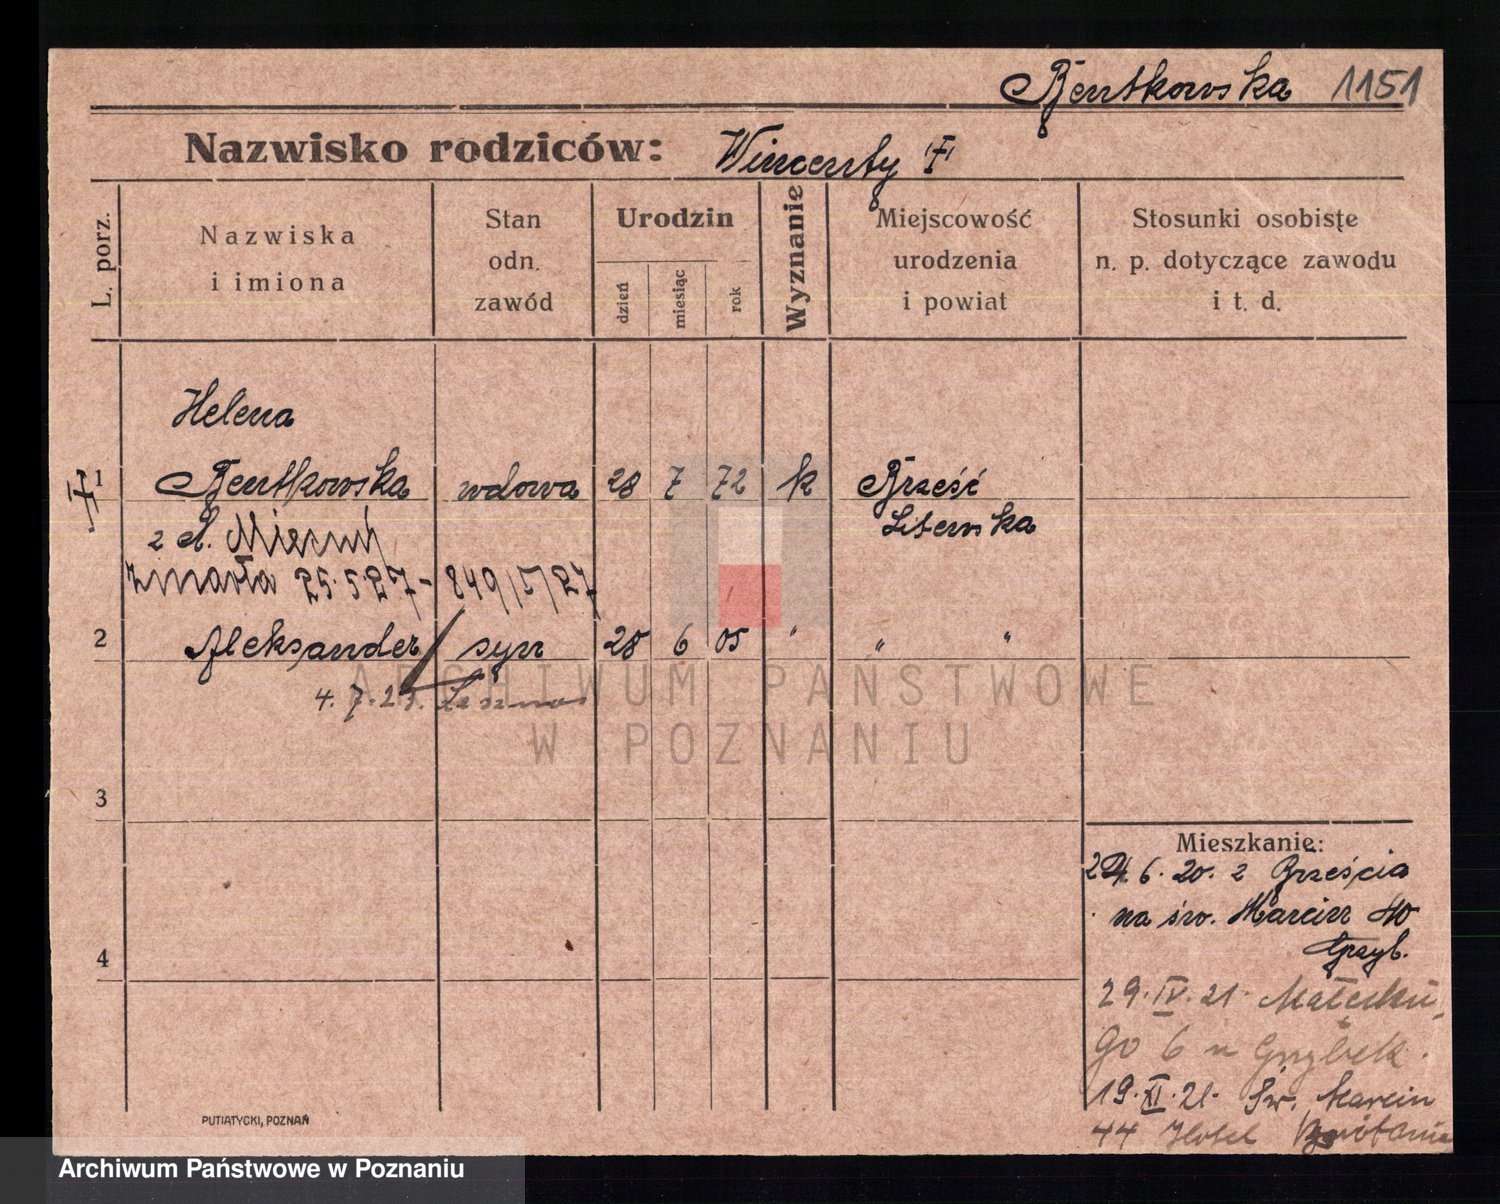 Bentkowska 1151
Nazwisko rodziców: Wincenty
L. porz.
Nazwiska
i imiona
Stan
odn.
zawód
Urodzin
dzień
miesiąc
rok
Wyznanie
Miejscowość
urodzenia
i powiat
Stosunki osobiste
n. p. dotyczące zawodu
i t. d.
Helena
1 Bentkowska wdowa 28 7 72 k Brześć
z d.
Litewska
zmarła 25.5.27 - 849/5/27
2 Aleksander syn 28 6 05 " " "
4. 7. 23.
ARCHIWUM PAŃSTWOWE
W POZNANIU
3
4
Mieszkanie:
24. 6. 20. z Brześcia
na św. Marcin 40
Grzyb.
29. IV. 21.
go 6 u Grzybek.
19. XI. 21. Św. Marcin
44 Hotel
PUTIATYCKI, POZNAŃ
Archiwum Państwowe w Poznaniu